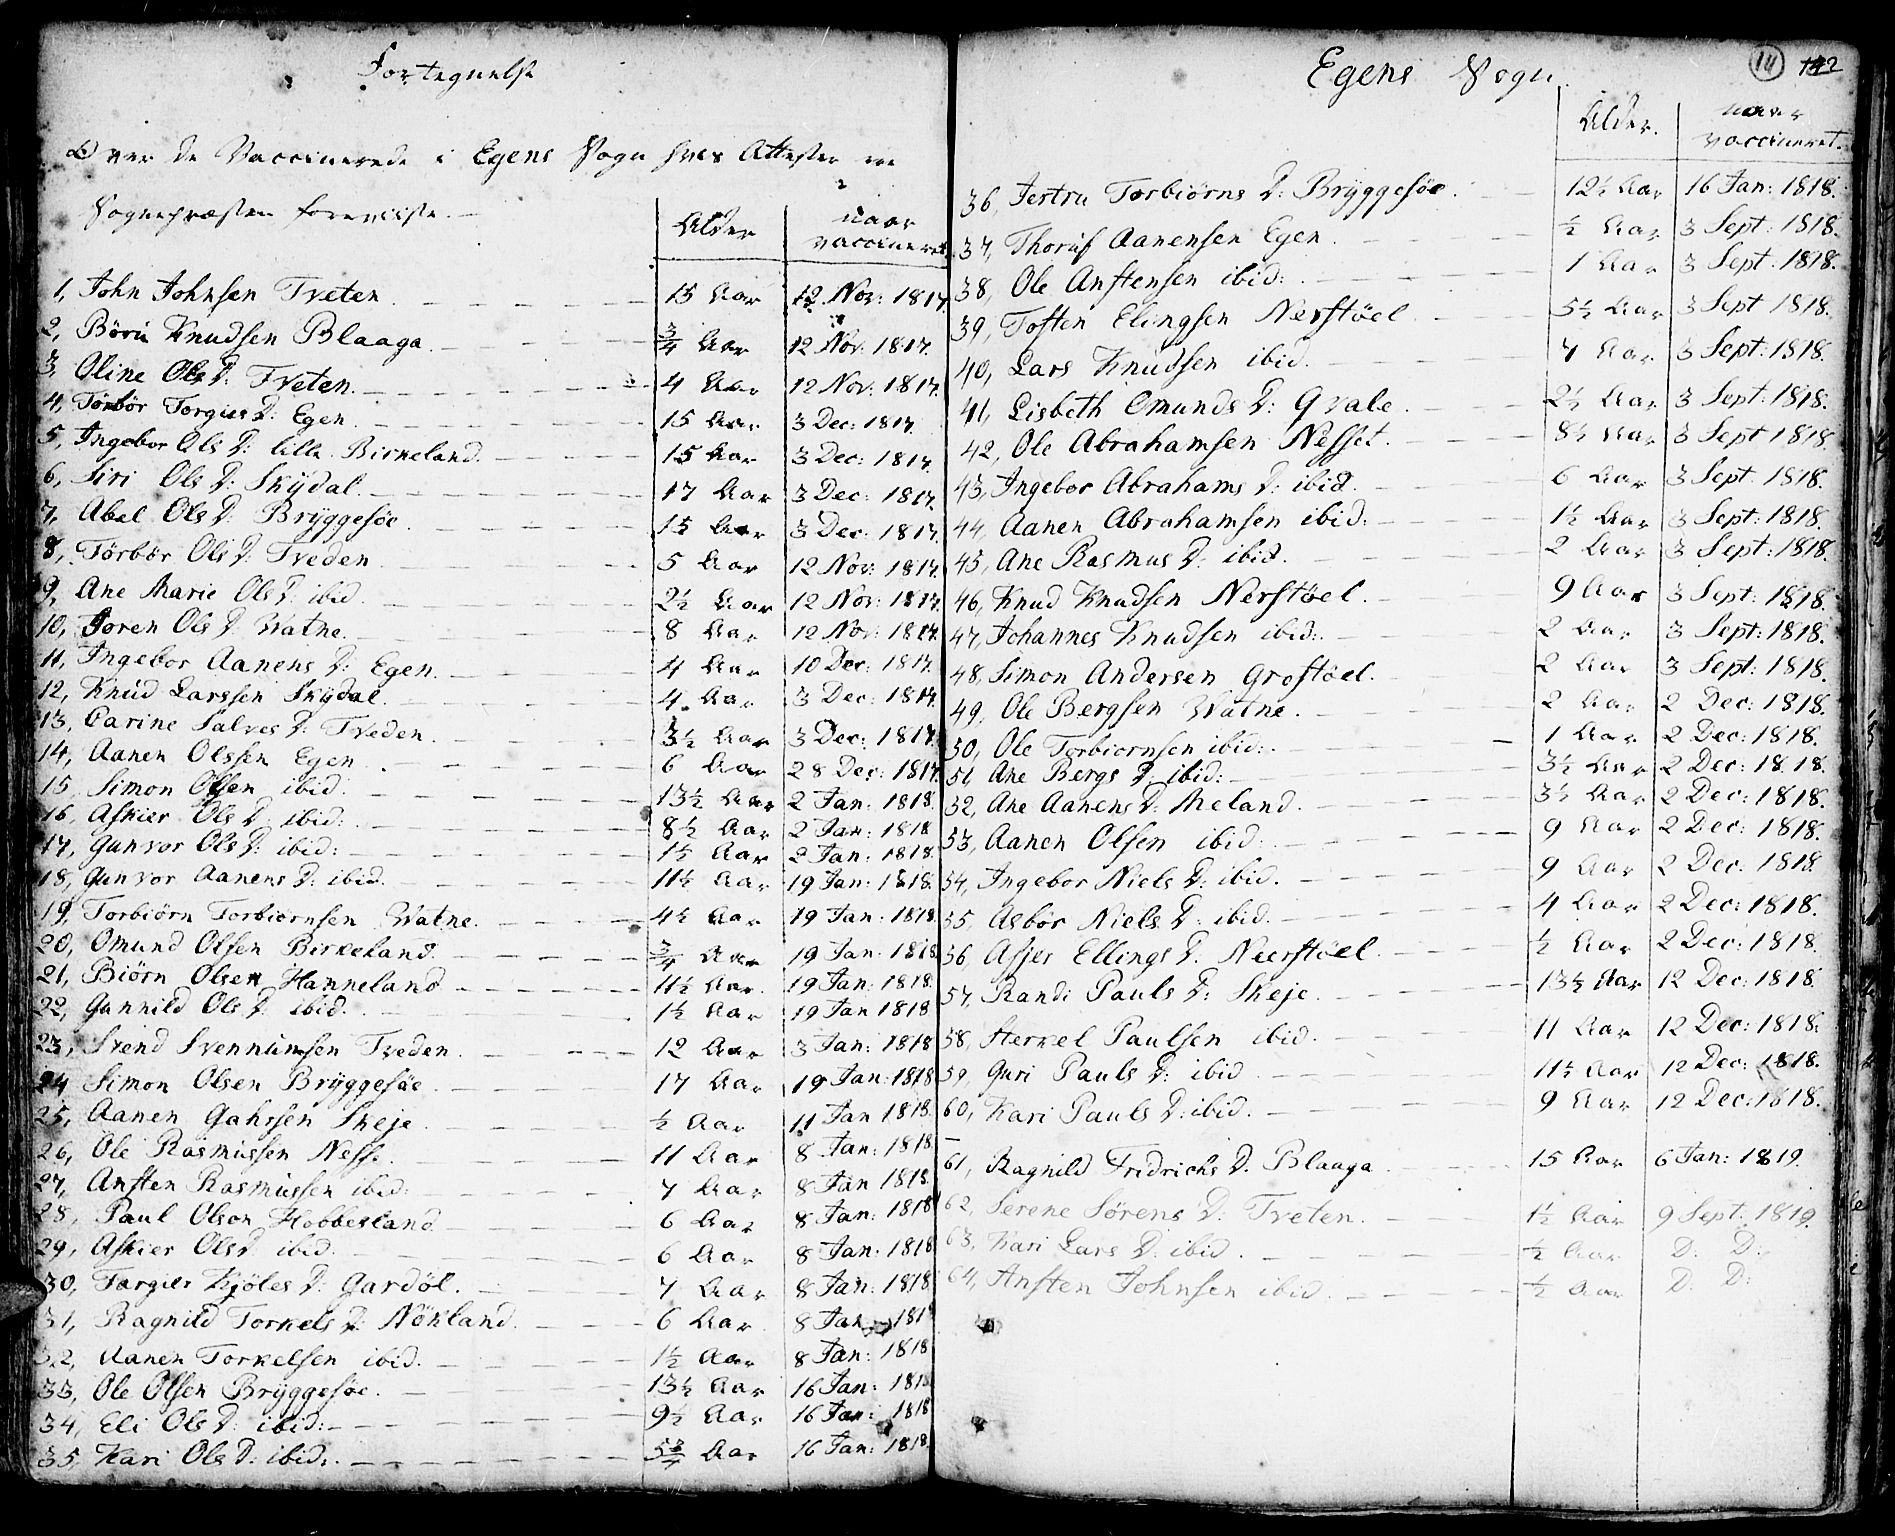 Fortegnelse
Over de Vaccinerede i Egens Sogn hvis Attester ere
Sognepræsten foreviiste.
Alder naar vaccineret
1, John Johnsen Tveten 15 Aar 12 Nov: 1817.
2, Böru Knudsen Blaaga ¾ Aar 12 Nov: 1817.
3, Oline Ols D: Tveten 4 Aar 12 Nov: 1817.
4, Törbör Torgies D: Egen 15 Aar 3 Dec: 1817.
5, Ingebor Ols D: lille Birkeland 15 Aar 3 Dec: 1817.
6, Siri Ols D: Skÿdal 17 Aar 3 Dec: 1817.
7, Abel Ols D: Brÿggesöe 15 Aar 3 Dec: 1817.
8, Törbör Ols D: Tveden 5 Aar 12 Nov: 1817.
9, Ane Marie Ols D: ibid 2½ Aar 12 Nov: 1817.
10, Joren Ols D: Watne 8 Aar 12 Nov: 1817.
11, Ingebor Aanens D: Egen 4 Aar 10 Dec: 1817.
12, Knud Larssen Skÿdal 4 Aar 3 Dec: 1817.
13, Carine Salves D: Tveden 3½ Aar 3 Dec: 1817.
14, Aanen Olssen Egen 6 Aar 28 Dec: 1817.
15, Simon Olsen ibid: 13½ Aar 2 Jan: 1818.
16, Askier Ols D: ibid: 8½ Aar 2 Jan: 1818
17, Gunvor Ols D: ibid: 1½ Aar 2 Jan: 1818.
18, Gunvor Aanens D: ibid. 11½ Aar 19 Jan: 1818.
19, Torbiörn Torbiornsen Watne. 4½ Aar 19 Jan: 1818
20, Omund Olsen Birkeland. ¾ Aar 19 Jan: 1818
21, Biörn Olsen Hanneland 11½ Aar. 19 Jan: 1818.
22, Gunnild Ols D: ibid. 1½ Aar 19 Jan 1818
23, Svend Svennumsen Tveden 12 Aar 3 Jan: 1818
24 Simon Olsen Brÿggesöe 17 Aar 19 Jan: 1818
25, Aanen Gahrsen Skeje ½ Aar 11 Jan 1818.
26, Ole Rasmussen Nesse 11 Aar 8 Jan: 1818
27, Ansten Rasmussen ibid: 7 Aar 8 Jan 1818.
28, Paul Olson Hobbesland 6 Aar 8 Jan: 1818
29, Askier Ols D ibid. 6 Aar 8 Jan: 1818
30, Targier Kjöles D: Gardöl. 7 Aar 8 Jan: 1818
31, Ragnild Torkels D: Nökland. 6 Aar 8 Jan 1818
32, Aanen Torkelsen ibid. 1½ Aar 8 Jan: 1818
33, Ole Olsen Brÿggesöe. 13½ Aar 16 Jan: 1818
34, Eli Ols D: ibid: 9½ Aar 16 Jan: 1818
35, Kari Ols D: ibid: 5¾ Aar 16 Jan: 1818.
Egens Sogn.
14 142
Alder. naar vaccineret.
36, Jertru Torbiörns D: Brÿggesöe 12½ Aar 16 Jan: 1818.
37, Thoruf Aanensen Egen ½ Aar 3 Sept: 1818.
38, Ole Anstensen ibid: 1 Aar 3 Sept: 1818.
39, Tosten Elingsen Nerstöel 5½ Aar 3 Sept 1818.
40, Lars Knudsen ibid. 7 Aar 3 Sept: 1818.
41, Lisbeth Omunds D: Qvale 2½ Aar 3 Sept: 1818.
42, Ole Abrahamsen Nesset. 8½ Aar 3 Sept 1818.
43, Ingebor Abrahams D: ibid 6 Aar 3 Sept: 1818.
44, Aanen Abrahamsen ibid: 1½ Aar 3 Sept: 1818.
45, Ane Rasmus D: ibid. 2 Aar 3 Sept: 1818.
46, Knud Knudsen Nerstöel. 9 Aar 3 Sept: 1818.
47, Johannes Knudsen ibid: 2 Aar 3 Sept: 1818.
48, Simon Andersen Grostöel. 2 Aar 3 Sept: 1818.
49, Ole Bergsen Watne. 2 Aar 2 Dec: 1818.
50, Ole Torbiornsen ibid: 1 Aar 2 Dec: 1818.
51 Ane Bergs D: ibid: 3½ Aar 2 Dec: 1818.
52, Ane Aanens D: Aeland. 3½ Aar 2 Dec: 1818.
53, Aanen Olsen ibid: 9 Aar 2 Dec: 1818.
54, Ingebor Niels D: ibid. 9 Aar 2 Dec: 1818.
55, Asbör Niels D: ibid. 4 Aar 2 Dec: 1818.
56, Assjer Ellings D: Neerstöel ½ Aar 2 Dec: 1818.
57, Randi Pauls D: Skeje. 13½ Aar 12 Dec: 1818.
58, Sterkel Paulsen ibid. 11 Aar 12 Dec: 1818.
59, Guri Pauls D: ibid 11½ Aar 12 Dec: 1818.
60, Kari Pauls D: ibid. 9 Aar 12 Dec: 1818.
61, Ragnild Fridrichs D. Blaaga 15 Aar 6 Jan: 1819.
62, Serene Sörens D: Tveten. 1½ Aar 9 Sept: 1819.
63, Kari Lars D: ibid. ½ Aar D: D:
64, Ansten Johnsen ibid. ½ Aar D: D: